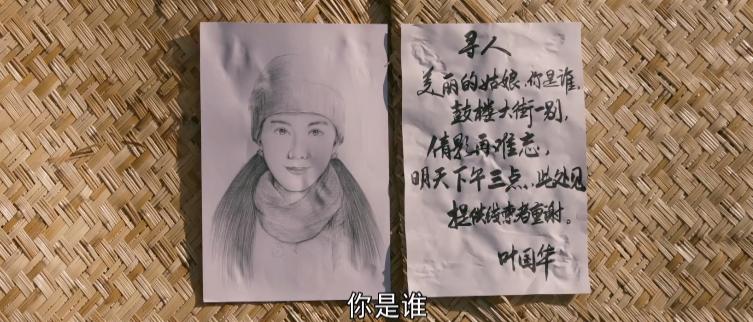 寻人
美丽的姑娘,你是谁,
鼓楼大街一别,
倩影再难忘,
明天下午三点,此处见
提供线索者重谢。
叶国华
你是谁